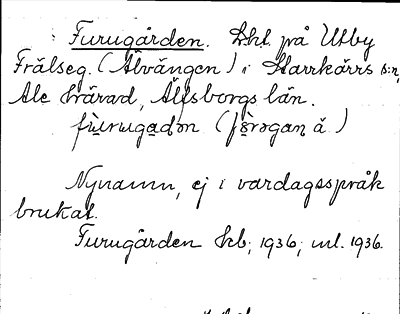 Furugården. Lht. på Utby
Frälseg. (Älvängen) i Starrkärrs s:n,
Ale härad, Älfsborgs län.
Nynamn, ej i vardagsspråk
brukat.
Furugården Jrb; 1936; ml. 1936.